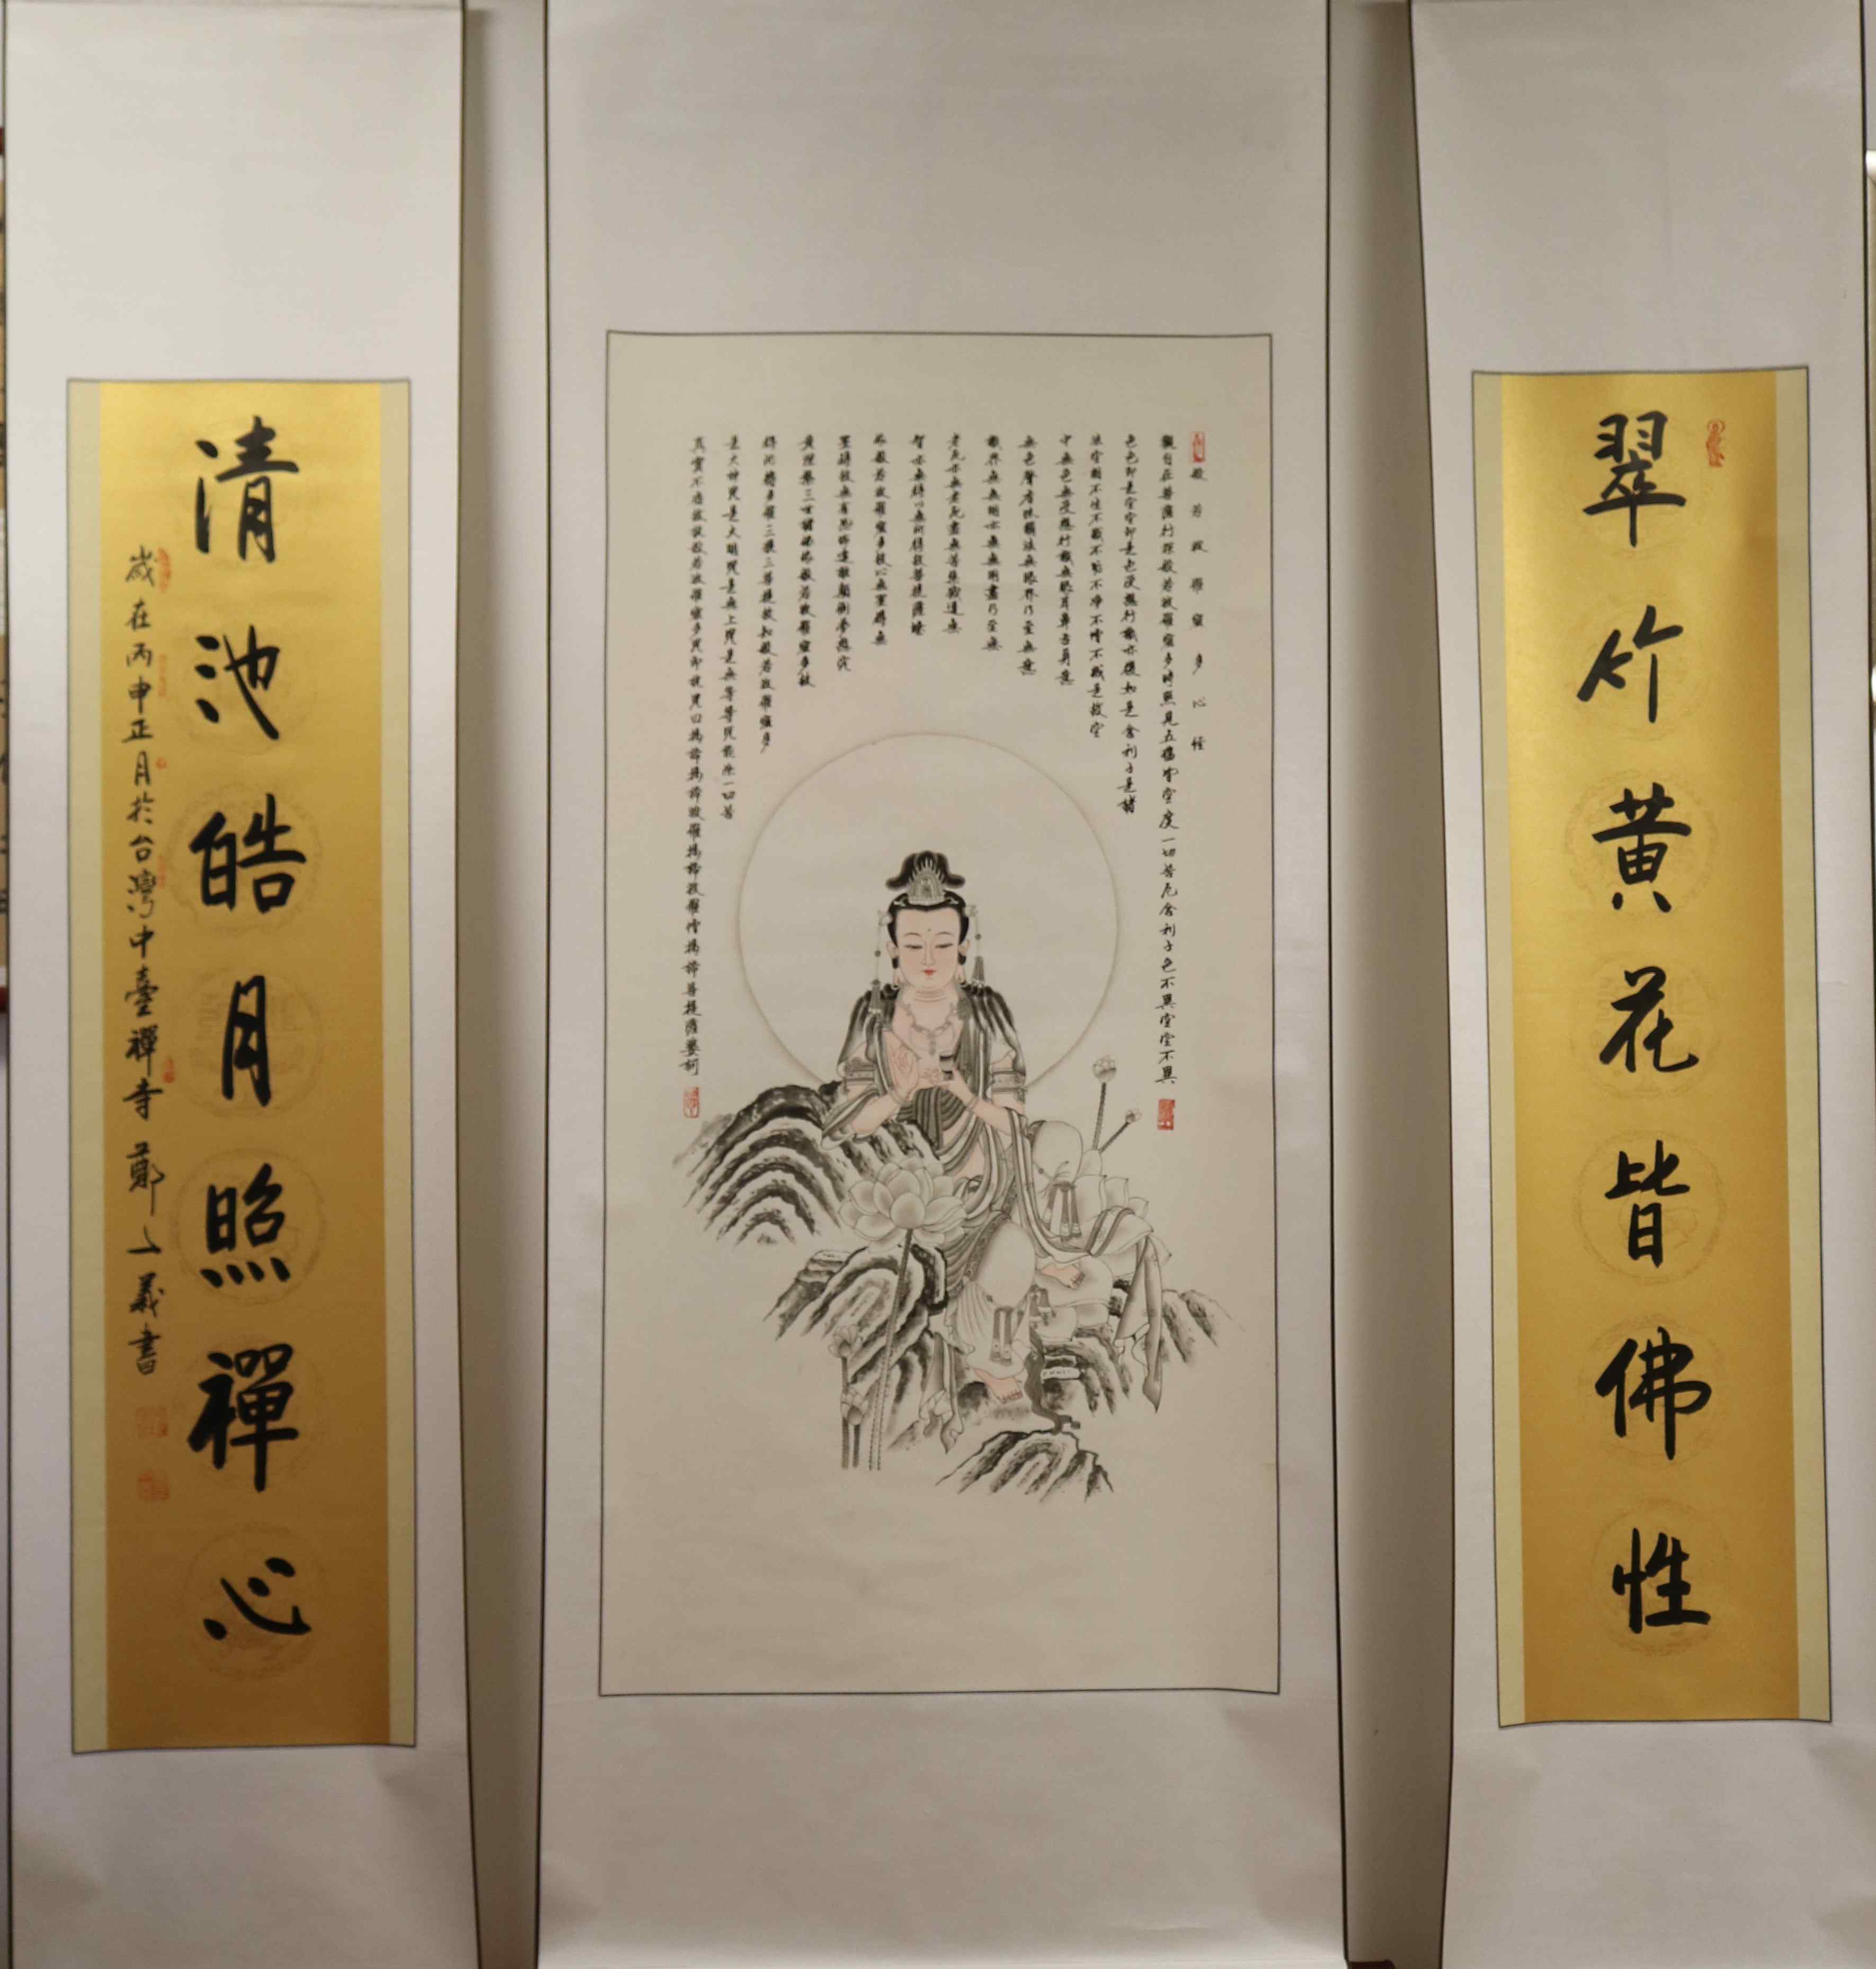 翠竹黄花皆佛性
般若波羅蜜多心經
觀自在菩薩行深般若波羅蜜多時照見五蘊皆空度一切苦厄舍利子色不異空空不異
色色即是空空即是色受想行識亦復如是舍利子是諸
法空相不生不滅不垢不净不增不減是故空
中無色無受想行識無眼耳鼻舌身意
無色聲香味觸法無眼界乃至無意
識界無無明亦無無明盡乃至無
老死亦無老死盡無苦集滅道無
智亦無得以無所得故菩提薩埵
依般若波羅蜜多故心無罣礙無
罣礙故無有恐怖遠離顛倒夢想究
竟涅槃三世諸佛依般若波羅蜜多故
得阿耨多羅三藐三菩提故知般若波羅蜜多
是大神咒是大明咒是無上咒是無等等咒能除一切苦
真實不虛故說般若波羅蜜多咒即說咒曰揭諦揭諦波羅揭諦波羅僧揭諦菩提薩婆訶
清池皓月照禪心
歲在丙申正月於台灣中臺禪寺 鄭 義書